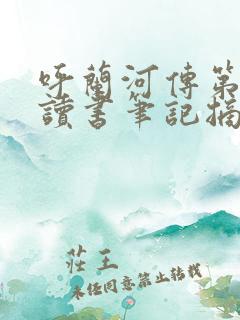 呼蘭河傳第
讀書筆記摘
莊王
未經同意禁止轉載